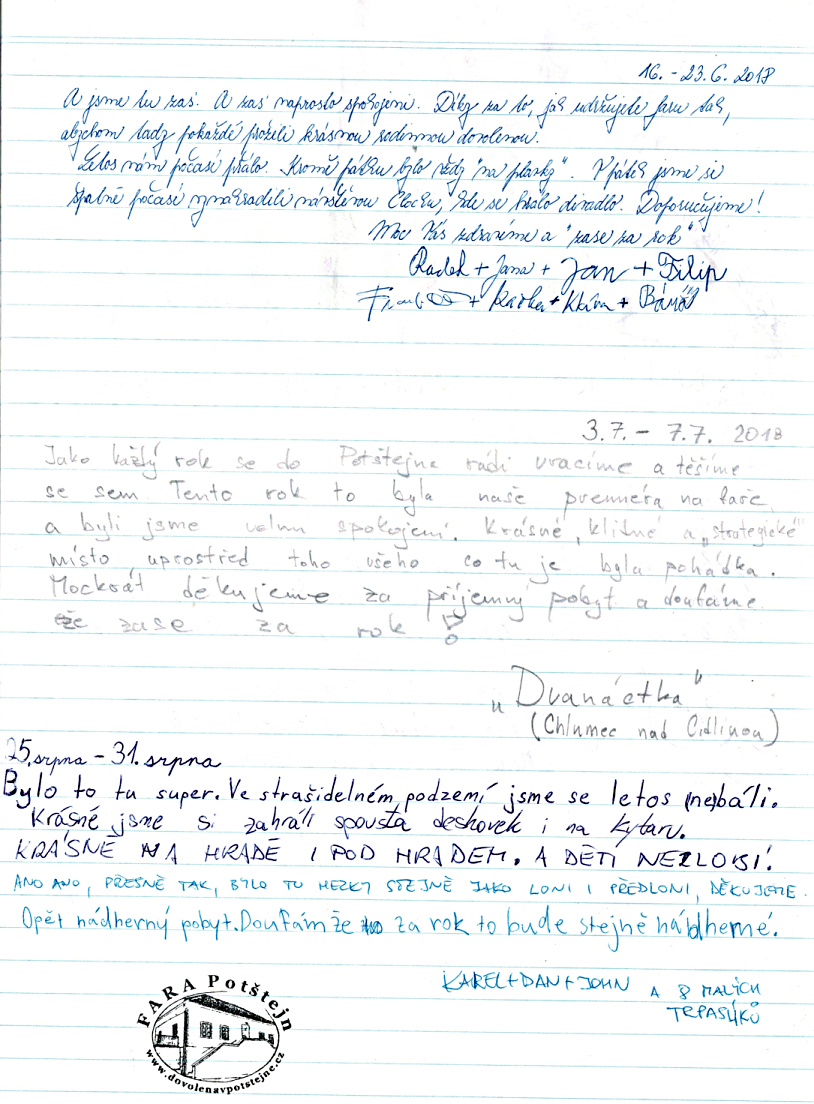 16. - 23. 6. 2018
A jsme tu zas. A zas naprosto spokojeni. Díky za to, jak udržujete faru tak,
abychom tady pokaždé prožili krásnou rodinnou dovolenou.
Letos nám počasí přálo. Kromě pátku bylo vždy "na plavky". V pátek jsme si
špatné počasí vynahradili návštěvou Čbocku, kde se hrálo divadlo. Doporučujeme!
Moc Vás zdravíme a "zase za rok"
Radek + Jana + Jan + Filip
+ Karka + Klára +
3.7. - 7.7. 2018
Jako každý rok se do Potštejna rádi vracíme a těšíme
se sem Tento rok to byla naše premiéra na faře
a byli jsme velmi spokojení. Krásné, klidné a „strategické"
místo uprostřed toho všeho co tu je byla pohádka.
Mockrát děkujeme za příjemný pobyt a doufáme
že zase za rok !
„Dvanáctka"
(Chlumec nad Cidlinou)
25. srpna - 31. srpna
Bylo to tu super. Ve strašidelném podzemí jsme se letos (ne)báli.
Krásně jsme si zahráli spousta deskovek i na kytaru.
KRÁSNĚ NA HRADĚ I POD HRADEM. A DĚTI NEZLOBSI!
ANO ANO, PŘESNĚ TAK, BYLO TU HEZKY STEJNĚ JAKO LONI I PŘEDLONI, DĚKUJEME.
Opět nádherný pobyt. Doufám že za rok to bude stejně nádherné.
KAREL+DAN+JOHN A 8 MALÝCH
TRPASLÍKŮ
FARA Potštejn
www.dovolenavpotstejne.cz